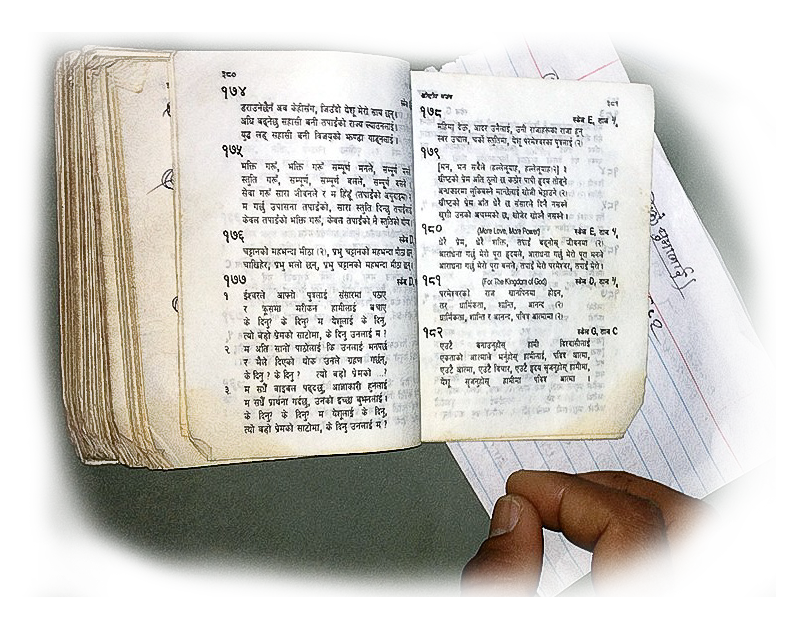 ३८०
१७४
डराउनेछैनँ अब केहीसँग, जिउँदो येशू मेरो साथ छन्।
अघि बढ्नेछु सहासी बनी तपाईंको राज्य
युद्ध लड्छु सहासी बनी विजयको झण्डा
१७५
भक्ति गरूँ, भक्ति गरूँ सम्पूर्ण मनले, सम्पूर्ण
स्तुति गरूँ, सम्पूर्ण, सम्पूर्ण बलले, सम्पूर्ण
सेवा गरूँ सारा जीवनले र म हिँडूँ
म गर्छु उपासना तपाईंको, सारा स्तुति दिन्छु
केवल तपाईंको भक्ति गरूँ, केवल तपाईंको नै स्तुतिको
१७६
स्केल D,
चट्टानको महभन्दा मीठा (२), प्रभु चट्टानको महभन्दा मीठा
चाखिहेर; प्रभु भलो छन्, प्रभु चट्टानको महभन्दा मीठा
१७७
स्केल D,
१ ईश्वरले आफ्नो पुत्रलाई संसारमा पठाए
र क्रूसमा मरीकन हामीलाई बचाए
के दिनु? के दिनु? म येशूलाई के दिनु,
त्यो बहो प्रेमको साटोमा, के दिनु उनलाई म?
२ म अति सानो पाठोलाई कि उनलाई मनपर्छ
र मैले दिएको थोक उनले ग्रहण गर्छन्,
के दिनु? के दिनु? त्यो बहो प्रेमको ...?
३ म सधैँ बाइबल पढ्दछु, आज्ञाकारी हुनलाई
म सधैँ प्रार्थना गर्दछु, उनको इच्छा बुझ्नलाई।
के दिनु? के दिनु? म येशूलाई के दिनु,
त्यो बहो प्रेमको साटोमा, के दिनु उनलाई म?
ख्रीष्टीय भजन
१८१
१७८
स्केल E, ताल ४/४
महिमा देऊ, आदर उनैलाई, उनी राजाहरूका राजा हुन्
स्वर उचाल, चर्को स्तुतिमा, येशू परमेश्वरका पुत्रलाई (२)
१७९
[धन, धन सबैले (हल्लेलूयाह, हल्लेलूयाह)२] ।
ख्रीष्टको प्रेम अति ठूलो छ कठोर पापी हृदय तोड्ने
अन्धकारमा लुकिबस्ने मान्छेलाई खोजी भेट्टाउने (२)
ख्रीष्टको प्रेम अति धेरै छ संसारले दिनै नसक्ने
खुशी उनको अचम्मको छ, खोजेर खोज्नै नसक्ने
१८०
(More Love, More Power)
स्केल E, ताल ४/४
धेरै प्रेम, धेरै शक्ति, तपाईं बढ्नोस् जीवनमा (२)
आराधना गर्छु मेरो पूरा हृदयले, आराधना गर्छु मेरो पूरा मनले
आराधना गर्छु मेरो पूरा बलले, तपाईं मेरो परमेश्वर, तपाईं मेरो।
१८१
(For The Kingdom of God)
स्केल D, ताल ४/४
परमेश्वरको राज्य खानपिनमा होइन,
तर धार्मिकता, शान्ति, आनन्द (२)
धार्मिकता, शान्ति र आनन्द, पवित्र आत्मामा (२)
१८२
स्केल G, ताल C
एउटै बनाउनुहोस् हामी विश्वासीलाई
एकताको आत्माले भर्नुहोस् हामीलाई, पवित्र आत्मा।
एउटै आत्मा, एउटै विचार, एउटै हृदय सृजनुहोस् हामीमा,
येशू सृजनुहोस् हामीमा पवित्र आत्मा।